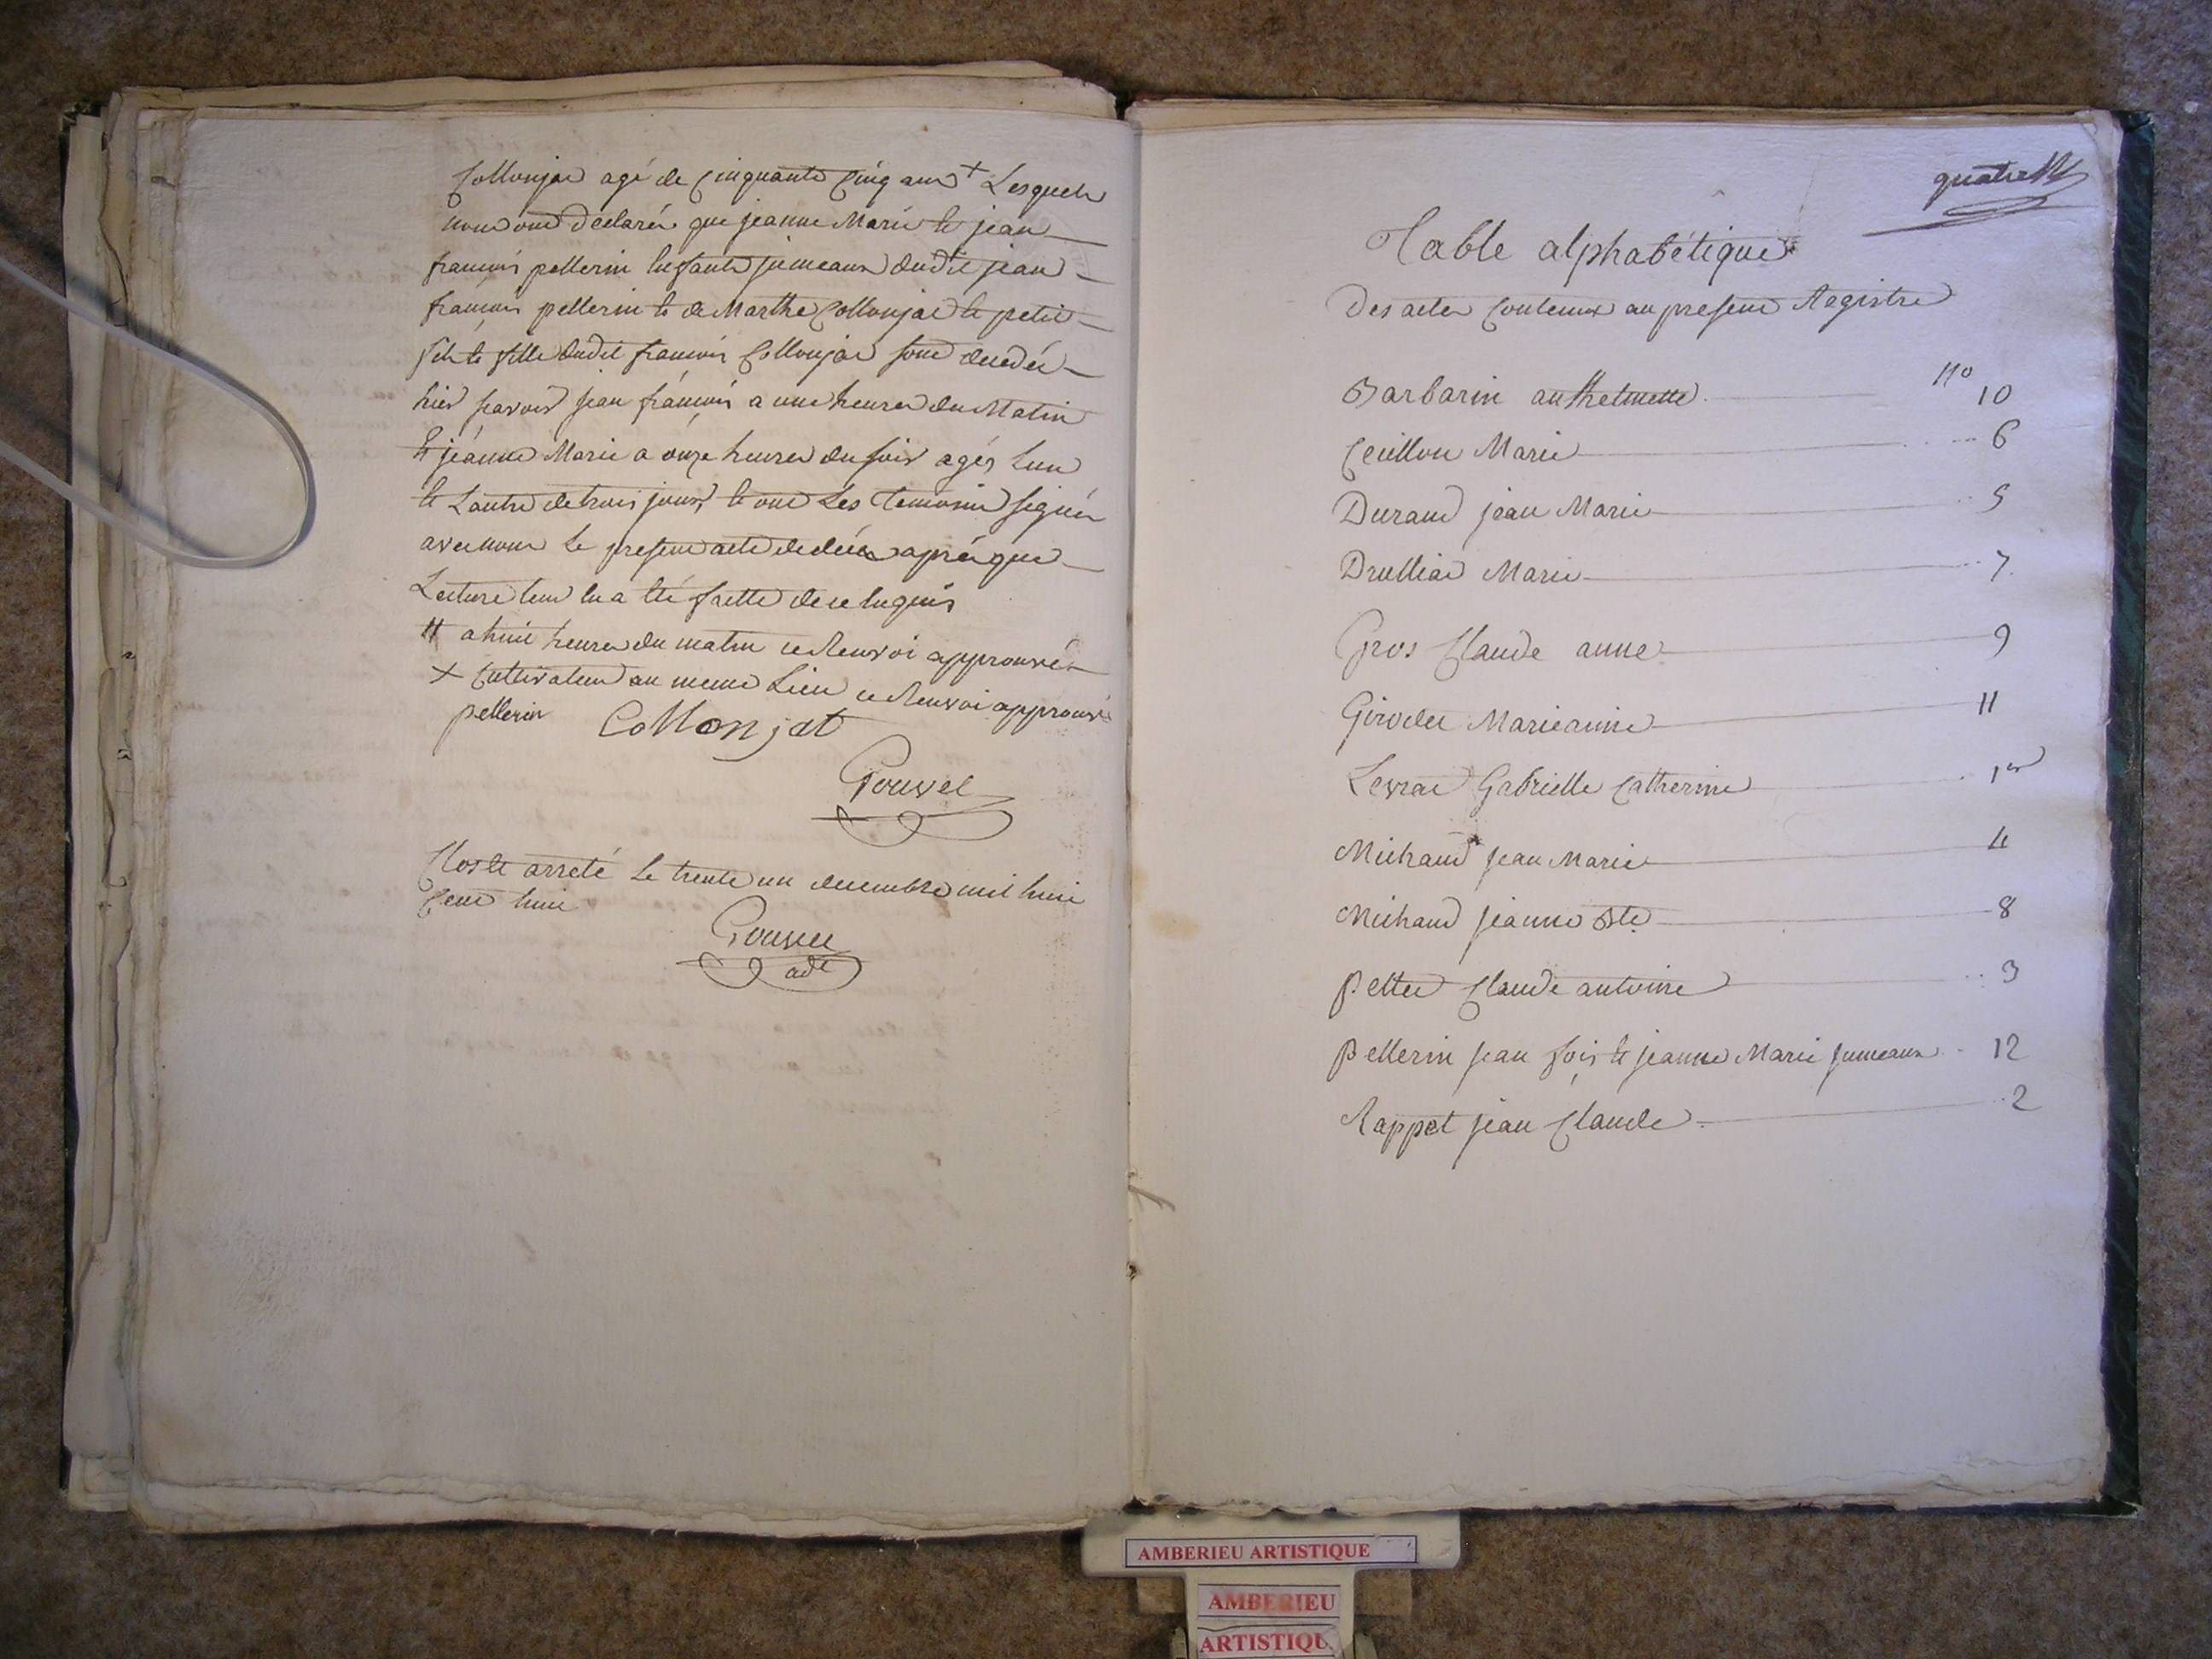 Collonjat agé de Cinquante Cinq ans + Lesquels
nous ont déclarés que jeanne Marie et jean
francois pellerin Enfants jumeaux dudit jean
francois pellerin et de Marthe Collonjat et petit
fils et fille dudit francois Collonjat sont décédés
hier savoir jean francois a une heures du Matin
Et jeanne Marie a onze heures du soir agés l'un
et Lautre de trois jours, et ont Les temoins signés
avec nous le present acte de décès aprés que
Lecture leur en a eté faitte
# a huit heures du matin ce Renvoi approuvé
+ Cultivateur au meme Lieu ce Renvoi approuvé
pellerin Collonjat
Clos et arreté le trente un decembre mil huit
Cent huit
adt
quatre
Table alphabétique
Des actes Contenus au present Registre
No
Barbarin anthelmette 10
Ceillon Marie 6
Durand jean Marie 5
Drulliat Marie 7
Gros Claude anne 9
Girodet Marieanne 11
Levrat Gabrielle Catherine 1er
Michaud jean Marie 4
Michaud jeanne Bte 8
Pettet Claude antoine 3
Pellerin jean fois et jeanne Marie jumeaux 12
Rappet jean Claude 2
AMBERIEU ARTISTIQUE
AMBERIEU
ARTISTIQU